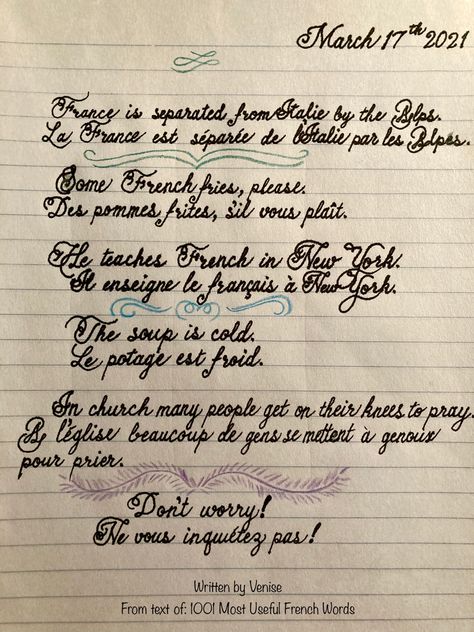 March 17th 2021
France is separated from Italie by the Alps.
La France est séparée de l'Italie par les Alpes.
Some French fries, please.
Des pommes frites, s'il vous plaît.
He teaches French in New York.
Il enseigne le français à New York.
The soup is cold.
Le potage est froid.
In church many people get on their knees to pray.
A l'église beaucoup de gens se mettent à genoux
pour prier.
Don't worry!
Ne vous inquiétez pas!
Written by Venise
From text of: 1001 Most Useful French Words